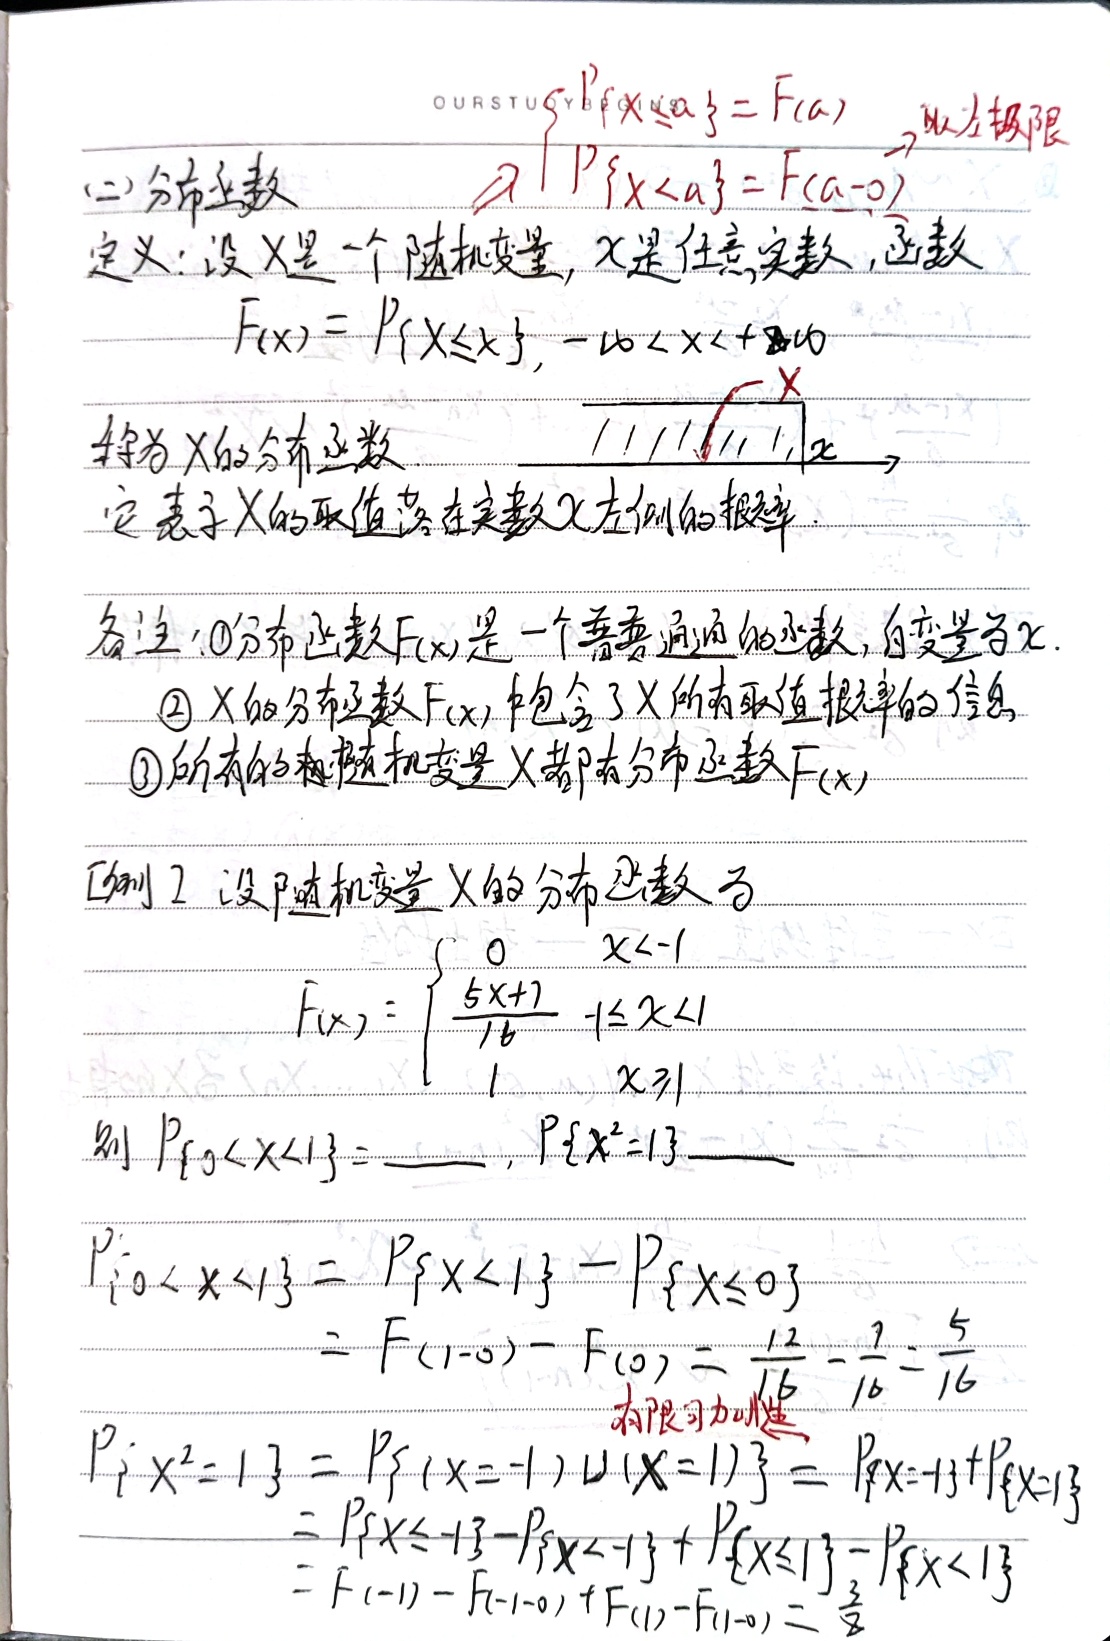 OURSTUDYBEGINS
P{X≤a}=F(a)
P{X<a}=F(a-0) → 取左极限
(二) 分布函数
定义:设X是一个随机变量, x是任意实数,函数
F(x) = P{X≤x}, -∞<x<+∞
X
x
称为X的分布函数.
它表示X的取值落在实数x左侧的概率.
备注:①分布函数F(x)是一个普普通通的函数,自变量为x.
② X的分布函数F(x)中包含了X所有取值概率的信息
③所有的随机变量X都有分布函数F(x)
[例] 2 设随机变量X的分布函数为
0 x<-1
F(x) = { (5x+7)/16 -1≤x<1
1 x≥1
则 P{0<X<1}=____, P{X²=1}____
P{0<X<1} = P{X<1} - P{X≤0}
= F(1-0) - F(0) = 12/16 - 7/16 = 5/16
有限可加性
P{X²=1} = P{(X=-1)∪(X=1)} = P{X=-1}+P{X=1}
= P{X≤-1}-P{X<-1}+P{X≤1}-P{X<1}
= F(-1) - F(-1-0) + F(1)-F(1-0) = 3/8